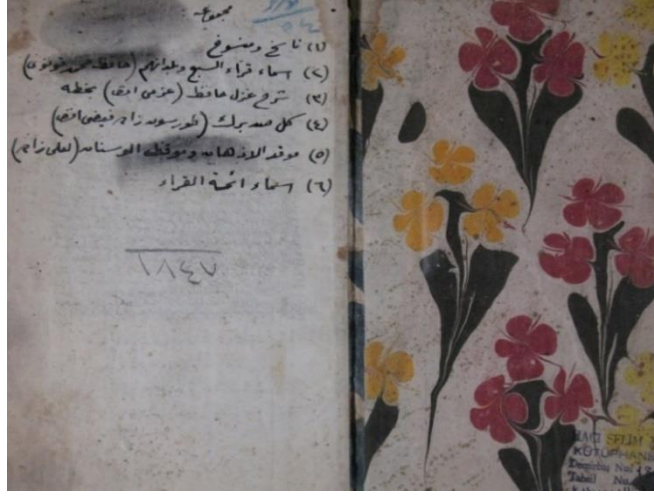 مجموعه
(١) ناسخ ومنسوخ
(٢) اسماء قراء السبع وبلدانهم (حافظ قونوى)
(٣) شرح غزل حافظ (عزمى افندى) بخطه
(٤) كل صد برك (طورسون زاده فيضى افندى)
(٥) موقد الاذهان وموقظ الوسنان (لعلى زاده)
(٦) اسماء ائمة القراء
١٨٤٧
HACI SELİM
KÜTÜPHANE
Demirbaş No.
Tasnif No.